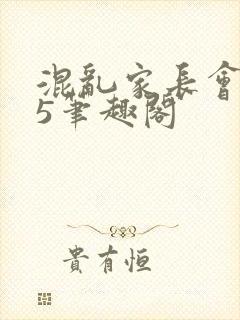 混亂家長會
5筆趣閣
貴有恒